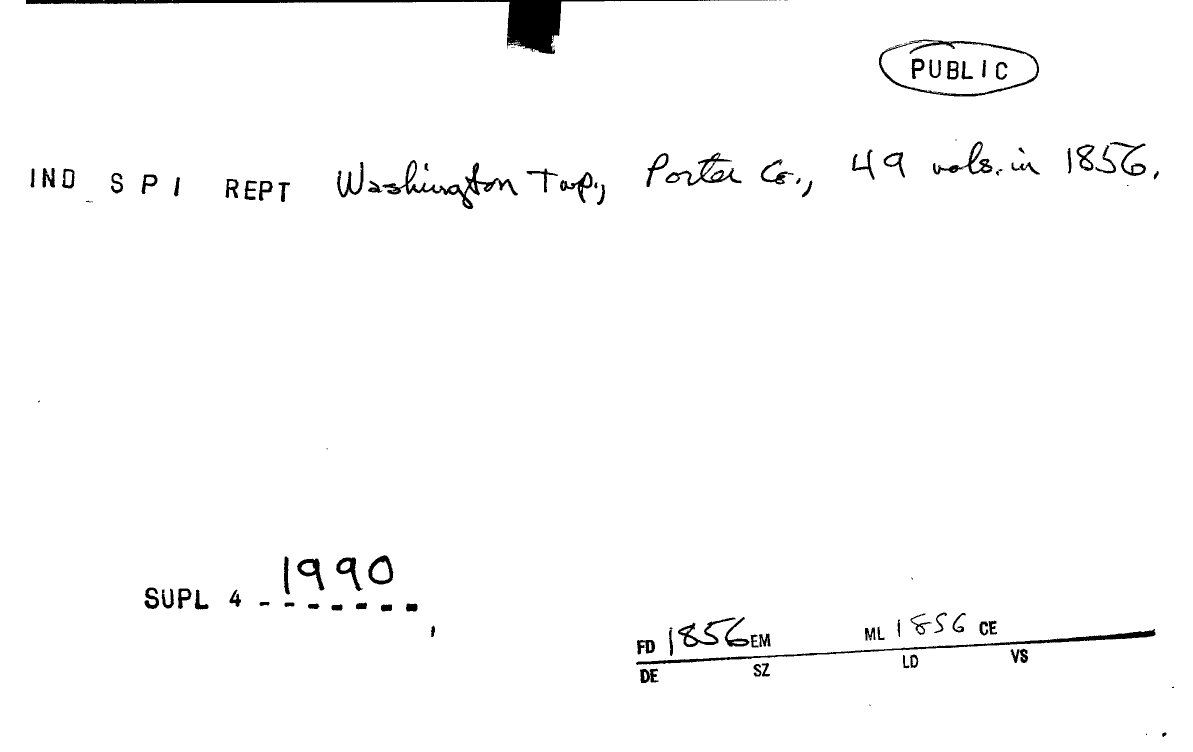 PUBLIC
IND S P I REPT Washington Twp., Porter Co., 49 vols. in 1856.
1990
SUPL 4 - - - - - - -
FD 1856 EM ML 1856 CE
DE SZ LD VS